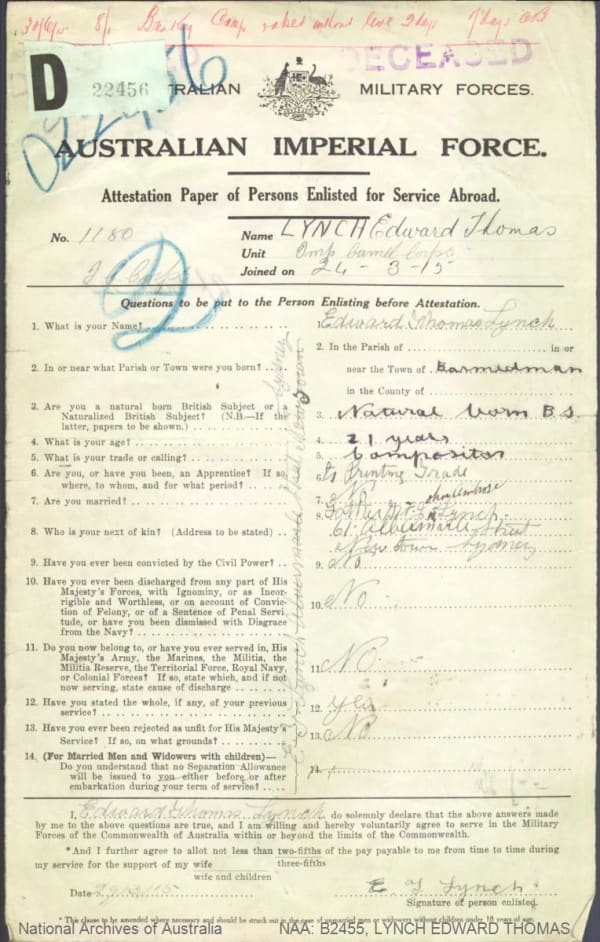 DECEASED
D 22456
MILITARY FORCES.
AUSTRALIAN IMPERIAL FORCE.
Attestation Paper of Persons Enlisted for Service Abroad.
No. 1180
Name LYNCH Edward Thomas
Unit Imp Camel Corps
Joined on 24-3-15
Questions to be put to the Person Enlisting before Attestation.
1. What is your Name? 1. Edward Thomas Lynch
2. In or near what Parish or Town were you born? 2. In the Parish of in or
near the Town of Barmedman
in the County of
3. Are you a natural born British Subject or a
Naturalized British Subject? (N.B.—If the
latter, papers to be shown.) 3. Natural born B.S.
4. What is your age? 4. 21 years
5. What is your trade or calling? 5. Compositor
6. Are you, or have you been, an Apprentice? If so,
where, to whom, and for what period? 6. Printing Trade
7. Are you married? 7. No
8. Who is your next of kin? (Address to be stated) 8. Father Lynch
61 Albermarle Street
Newtown Sydney
9. Have you ever been convicted by the Civil Power? 9. No
10. Have you ever been discharged from any part of His
Majesty's Forces, with Ignominy, or as Incor-
rigible and Worthless, or on account of Convic-
tion of Felony, or of a Sentence of Penal Servi-
tude, or have you been dismissed with Disgrace
from the Navy? 10. No
11. Do you now belong to, or have you ever served in, His
Majesty's Army, the Marines, the Militia, the
Militia Reserve, the Territorial Force, Royal Navy,
or Colonial Forces? If so, state which, and if not
now serving, state cause of discharge 11. No
12. Have you stated the whole, if any, of your previous
service? 12. Yes
13. Have you ever been rejected as unfit for His Majesty's
Service? If so, on what grounds? 13. No
14. (For Married Men and Widowers with children)—
Do you understand that no Separation Allowance
will be issued to you either before or after
embarkation during your term of service? 14.
I, Edward Thomas Lynch do solemnly declare that the above answers made
by me to the above questions are true, and I am willing and hereby voluntarily agree to serve in the Military
Forces of the Commonwealth of Australia within or beyond the limits of the Commonwealth.
*And I further agree to allot not less than two-fifths of the pay payable to me from time to time during
three-fifths
my service for the support of my wife
wife and children
Date
E T Lynch
Signature of person enlisted.
* This clause to be amended where necessary and should be struck out in the case of unmarried men or widowers without children under 18 years of age.
National Archives of Australia NAA: B2455, LYNCH EDWARD THOMAS